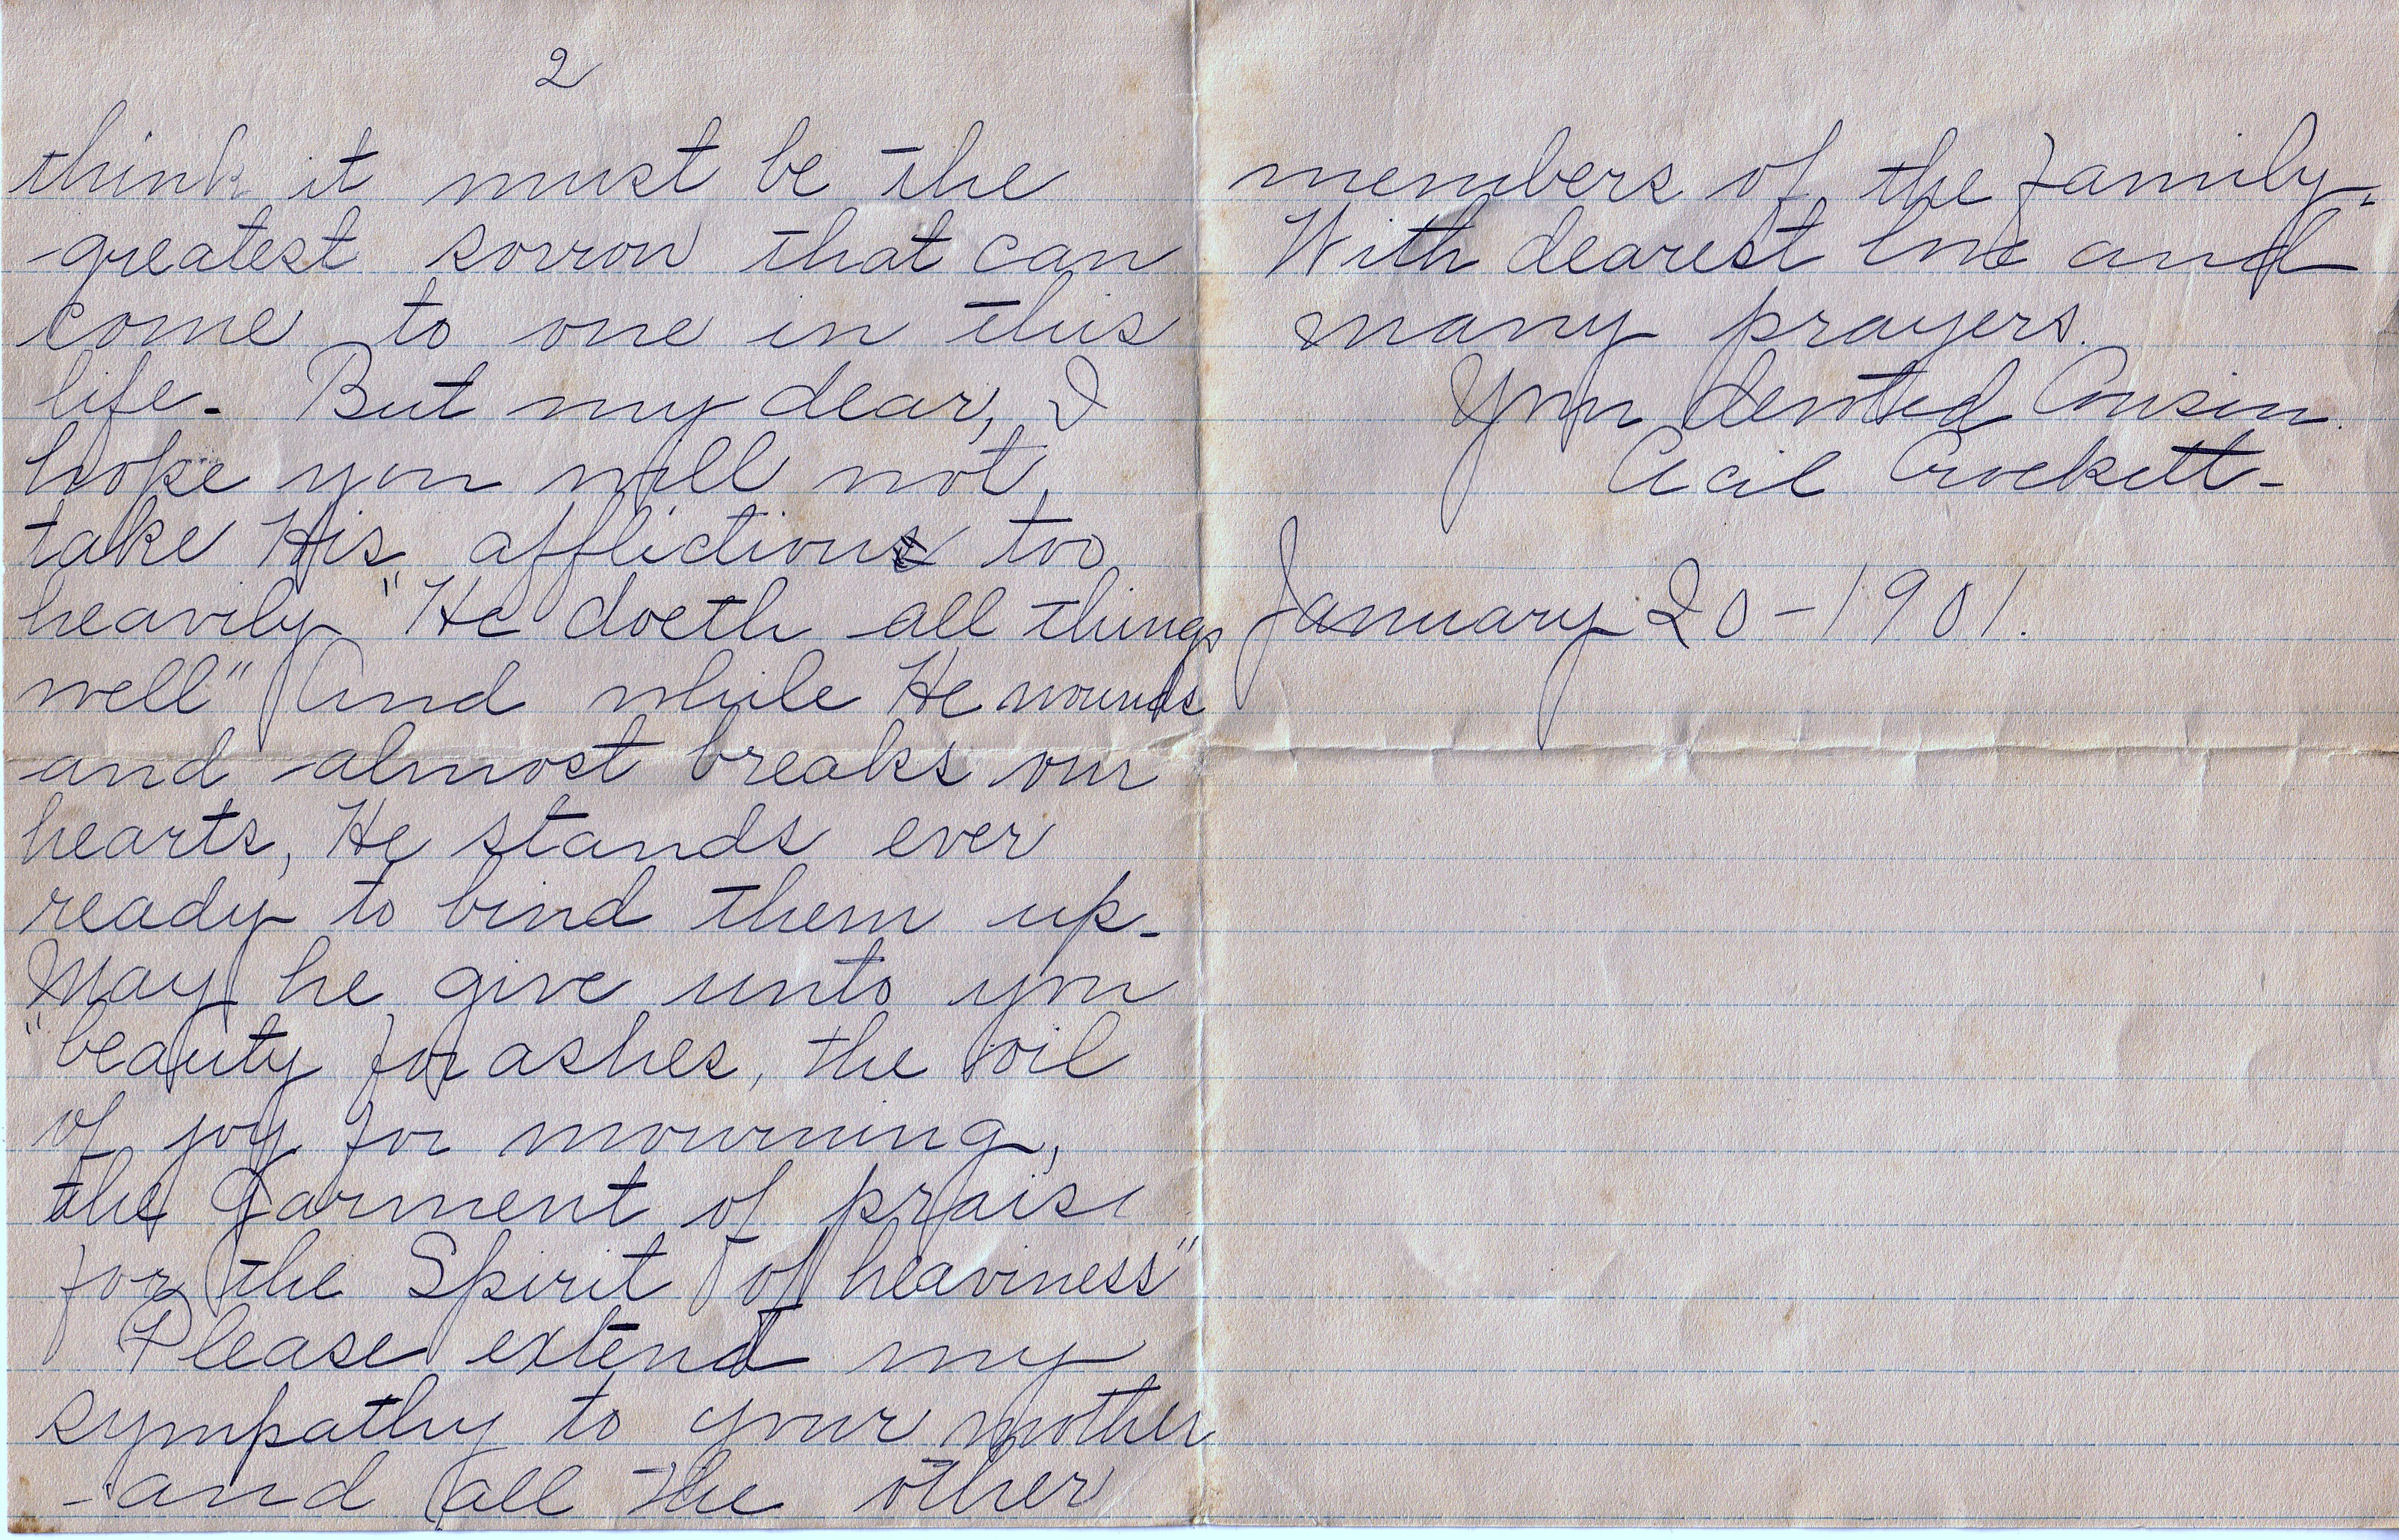 2
think it must be the
greatest sorrow that can
come to one in this
life. But my dear, I
hope you will not
take His afflictions too
heavily "He doeth all things
well" And while He wounds
and almost breaks our
hearts, He stands ever
ready to bind them up-
May he give unto you
"beauty for ashes, the oil
of joy for mourning,
the Garment of praise
for the Spirit of heaviness"
Please extend my
sympathy to your mother
and all the other
members of the family.
With dearest love and
many prayers.
Your devoted Cousin.
Cecil Crockett-
January 20-1901.